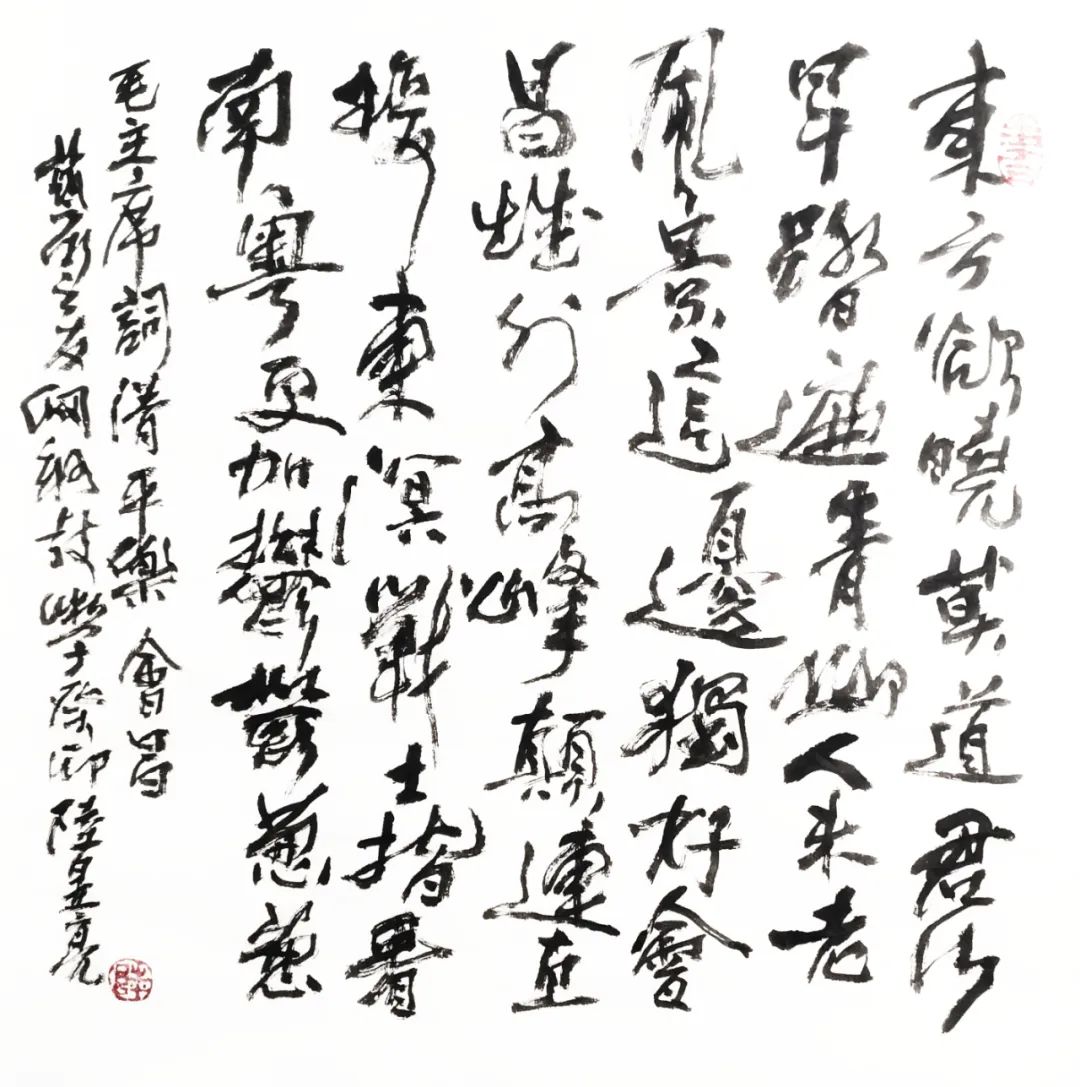 東方欲曉莫道君行
早踏遍青山人未老
風景這邊獨好會
昌城外高峰顛連直
接東溟戰士指看
南粵更加鬱鬱葱葱
毛主席詞清平樂 會昌
之友網 癸卯陸亮